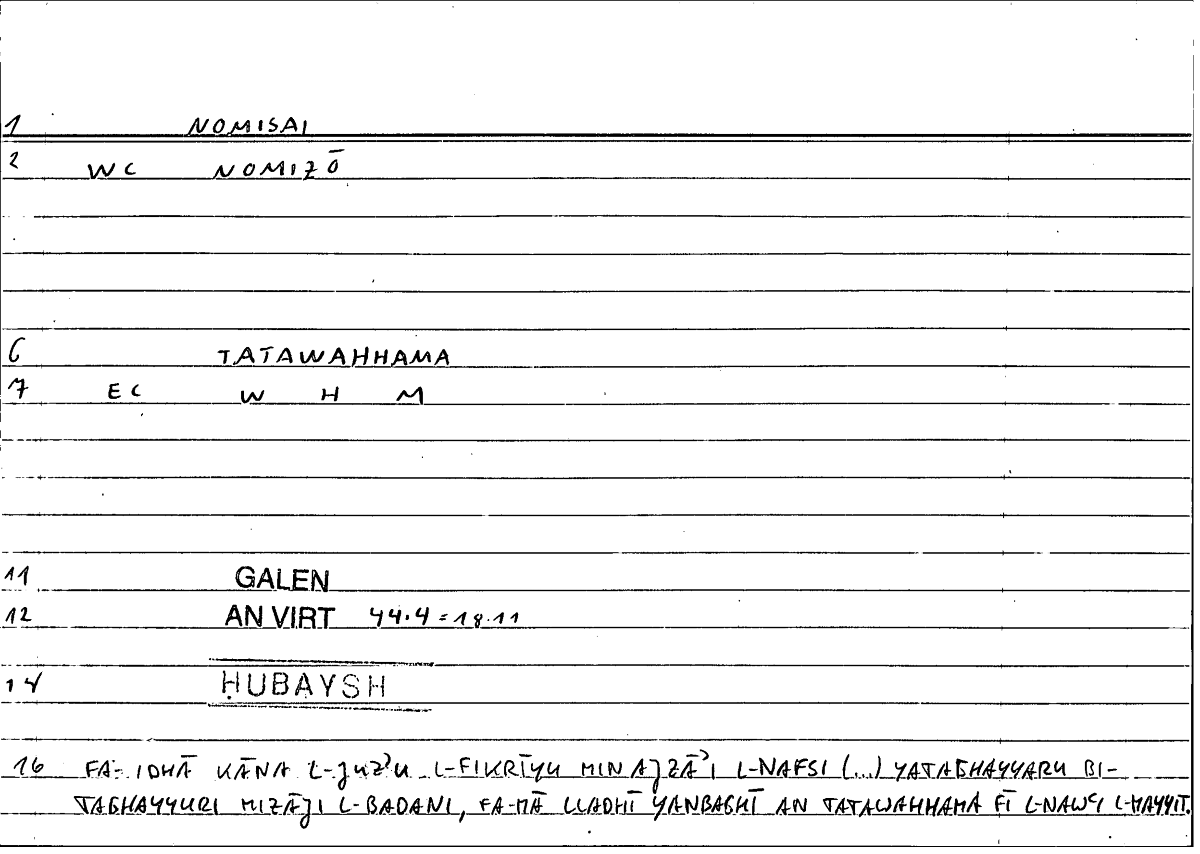 1 NOMISAI
2 WC NOMIZŌ
6 TATAWAHHAMA
7 EC W H M
11 GALEN
12 AN VIRT 44.4 = 18.11
14 ḤUBAYSH
16 FA-IDHĀ KĀNA L-JUZʾU L-FIKRĪYU MIN AJZĀʾI L-NAFSI (...) YATAGHAYYARU BI-
TAGHAYYURI MIZĀJI L-BADANI, FA-MĀ LLADHĪ YANBAGHĪ AN TATAWAHHAMA FĪ L-NAWʿI L-MAYYIT.